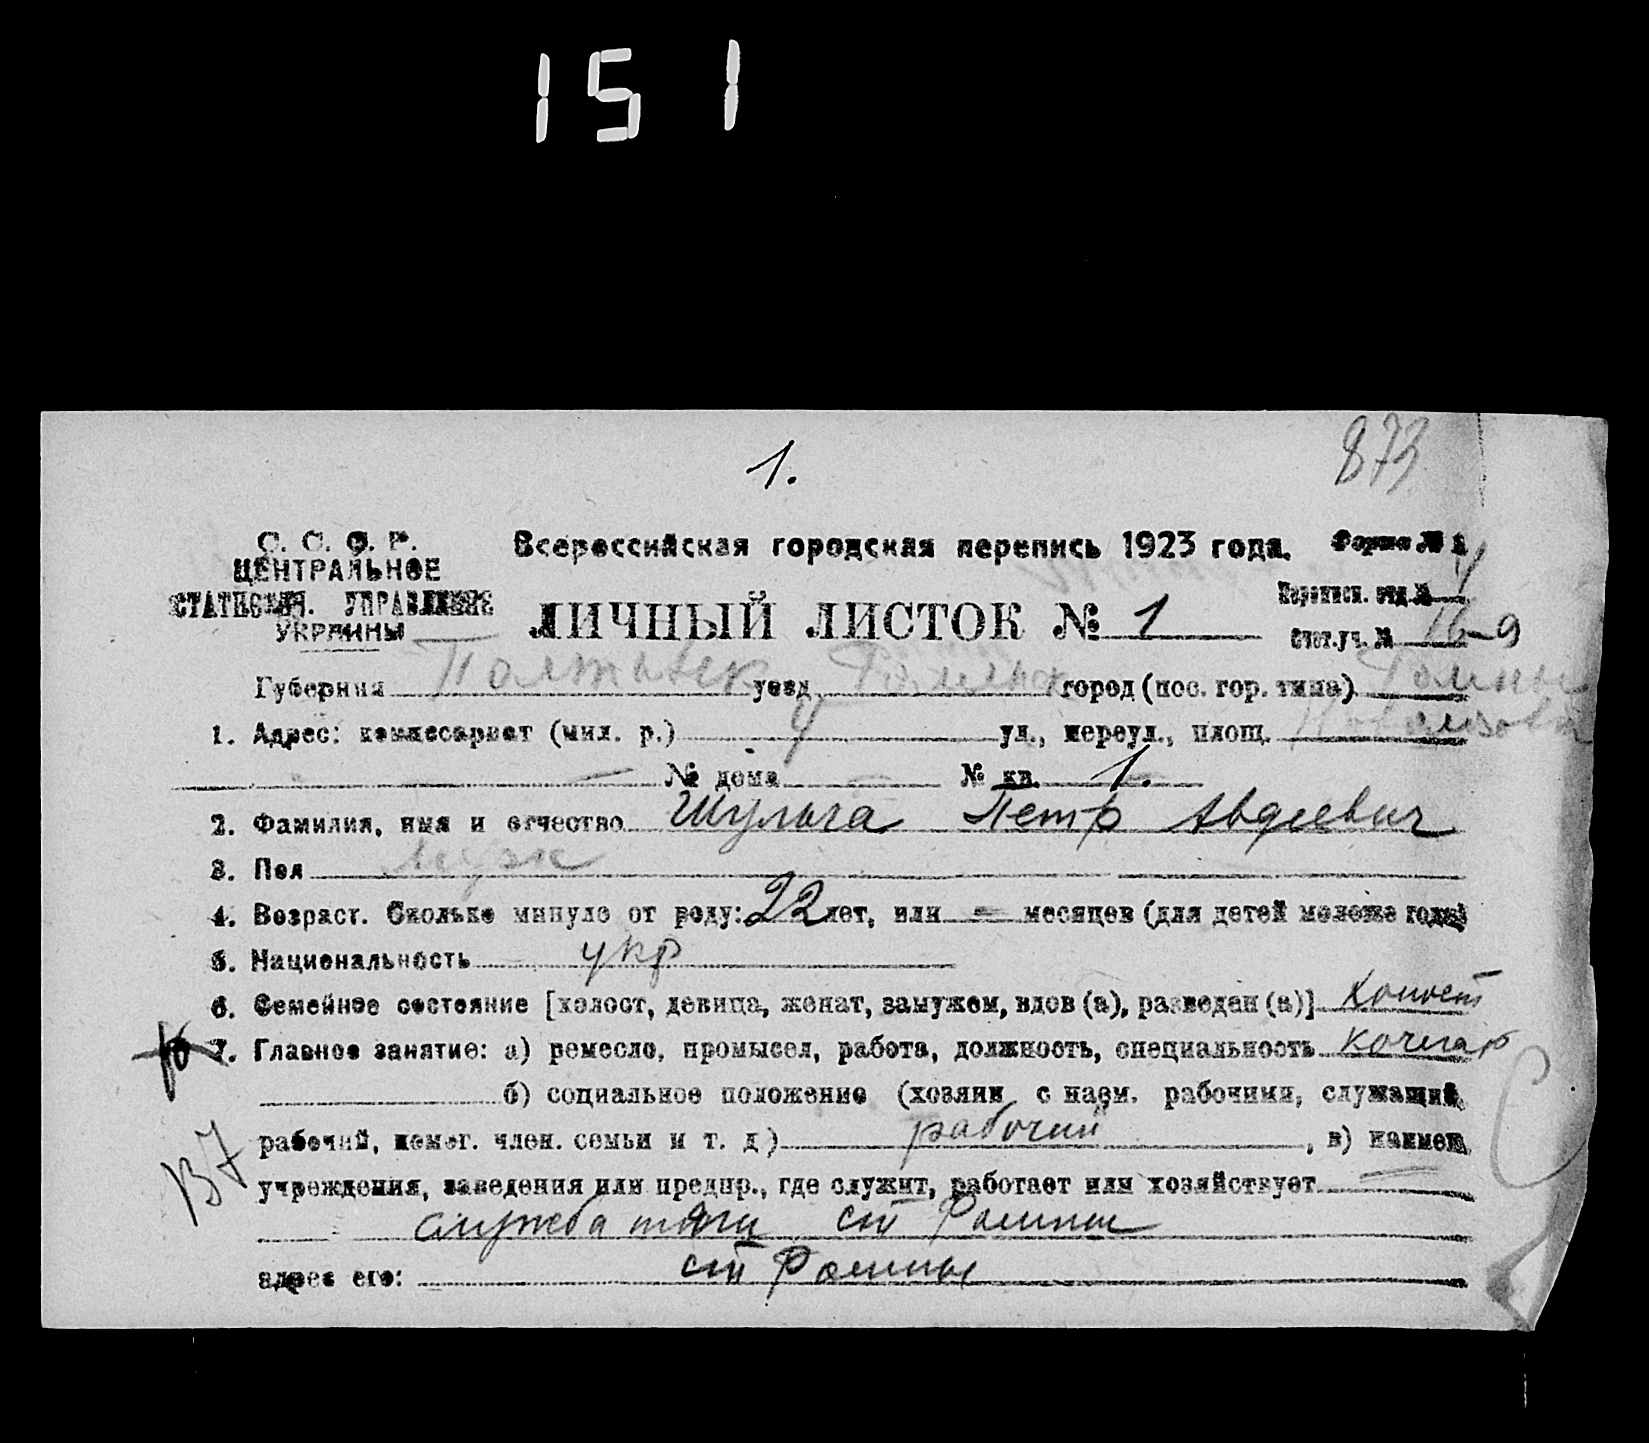 151
1.
873
С. С. С. Р.
ЦЕНТРАЛЬНОЕ
СТАТИСТИЧ. УПРАВЛЕНИЕ
УКРАИНЫ
Всероссийская городская перепись 1923 года.
Форма № 1
ЛИЧНЫЙ ЛИСТОК № 1
Переписн. отд. № 4
Счет. уч. № 16-9
Губерния Полтавск уезд Роменск город (пос. гор. типа) Ромны
1. Адрес: комиссариат (мил. р.) 4 ул., переул., площ.
№ дома — № кв. 1.
2. Фамилия, имя и отчество Шульга Петр Авдеевич
3. Пол муж
4. Возраст. Сколько минуло от роду: 22 лет, или — месяцев (для детей моложе года)
5. Национальность укр
6. Семейное состояние [холост, девица, женат, замужем, вдов (а), разведен (а)] холост
7. Главное занятие: а) ремесло, промысел, работа, должность, специальность кочегар
б) социальное положение (хозяин с наем. рабочими, служащий,
рабочий, помог. член. семьи и т. д) рабочий, в) наимен.
В7
учреждения, заведения или предпр., где служит, работает или хозяйствует
служба тяги ст Ромны
адрес его: ст Ромны